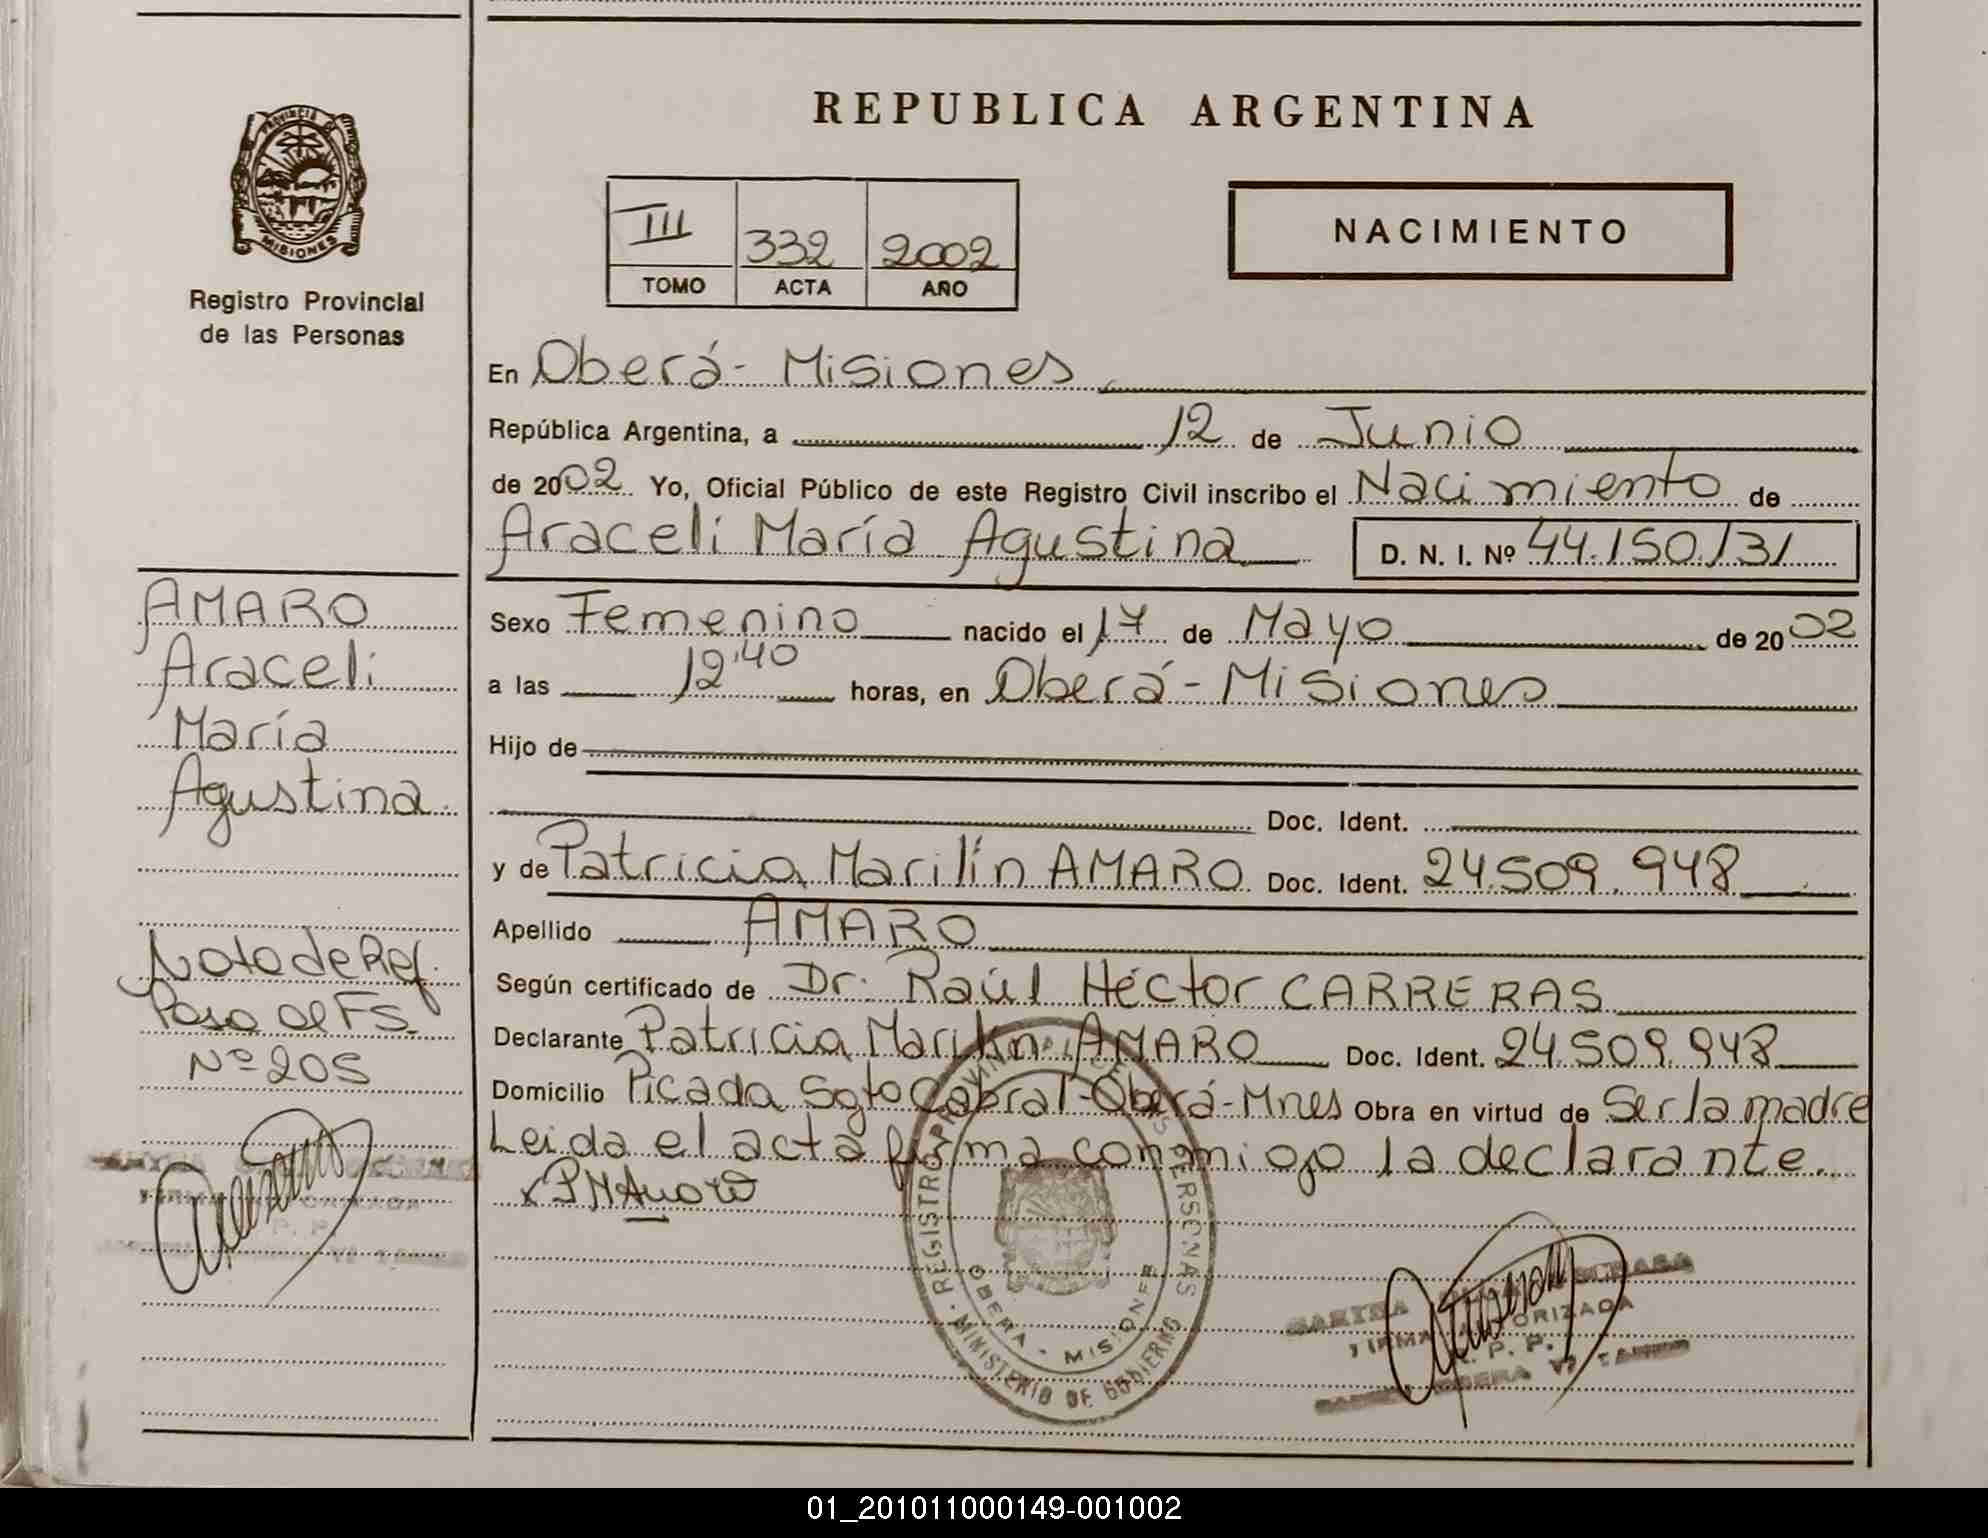 REPUBLICA ARGENTINA
PROVINCIA DE
MISIONES
Registro Provincial
de las Personas
III 332 2002
TOMO ACTA AÑO
NACIMIENTO
En Oberá - Misiones
República Argentina, a 12 de Junio
de 2002 Yo, Oficial Público de este Registro Civil inscribo el Nacimiento de
Araceli María Agustina D. N. I. Nº 44.150.131
Sexo Femenino nacido el 17 de Mayo de 2002
a las 12'40 horas, en Oberá - Misiones
Hijo de
Doc. Ident.
y de Patricia Marilín AMARO Doc. Ident. 24.509.948
Apellido AMARO
Según certificado de Dr. Raúl Héctor CARRERAS
Declarante Patricia Marilín AMARO Doc. Ident. 24.509.948
Domicilio Picada Sgto Cabral - Oberá - Mnes Obra en virtud de Ser la madre
Leida el acta firma conmigo la declarante.
AMARO
Araceli
María
Agustina
Nota de Ref.
Pasa al Fs.
Nº 205
REGISTRO PROVINCIAL DE LAS PERSONAS
OBERA - MISIONES
MINISTERIO DE GOBIERNO
FIRMA AUTORIZADA
R. P. P.
01_201011000149-001002